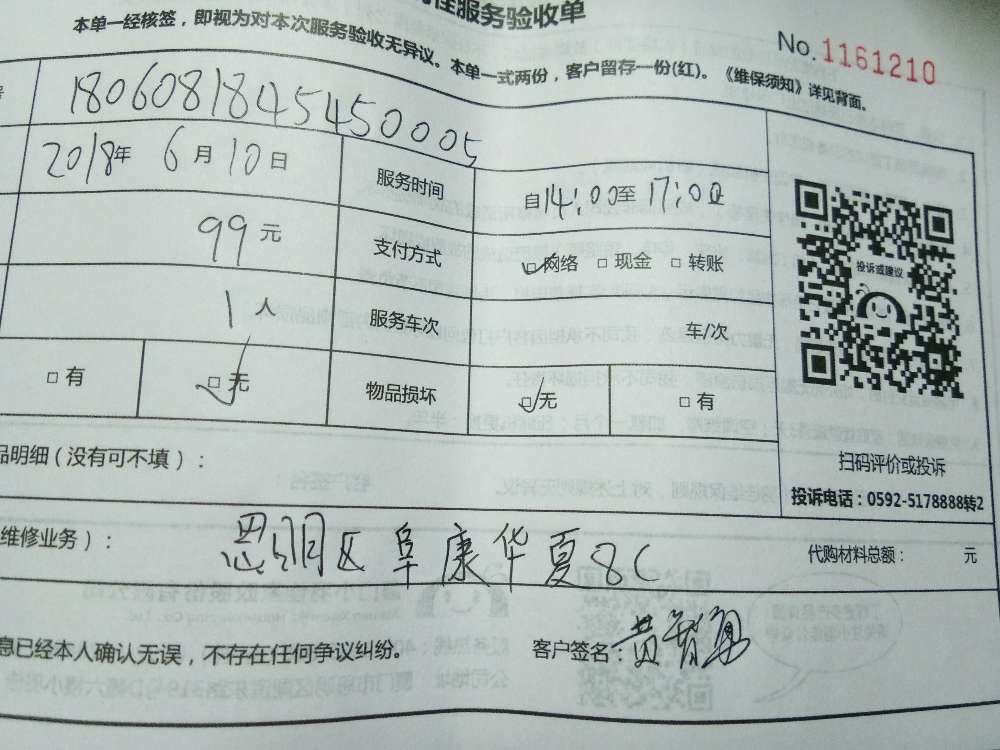 性服务验收单
本单一经核签，即视为对本次服务验收无异议。本单一式两份，客户留存一份(红)。《维保须知》详见背面。
No.1161210
1806081845450005
2018年 6月 10日 服务时间 自14:00至17:00
99元 支付方式 网络 □ 现金 □ 转账
1人 服务车次 车/次
□ 有 □ 无 物品损坏 □ 无 □ 有
投诉或建议
扫码评价或投诉
投诉电话：0592-5178888转2
品明细（没有可不填）：
维修业务）： 思明区阜康华夏8C 代购材料总额： 元
息已经本人确认无误，不存在任何争议纠纷。 客户签名：黄智勇